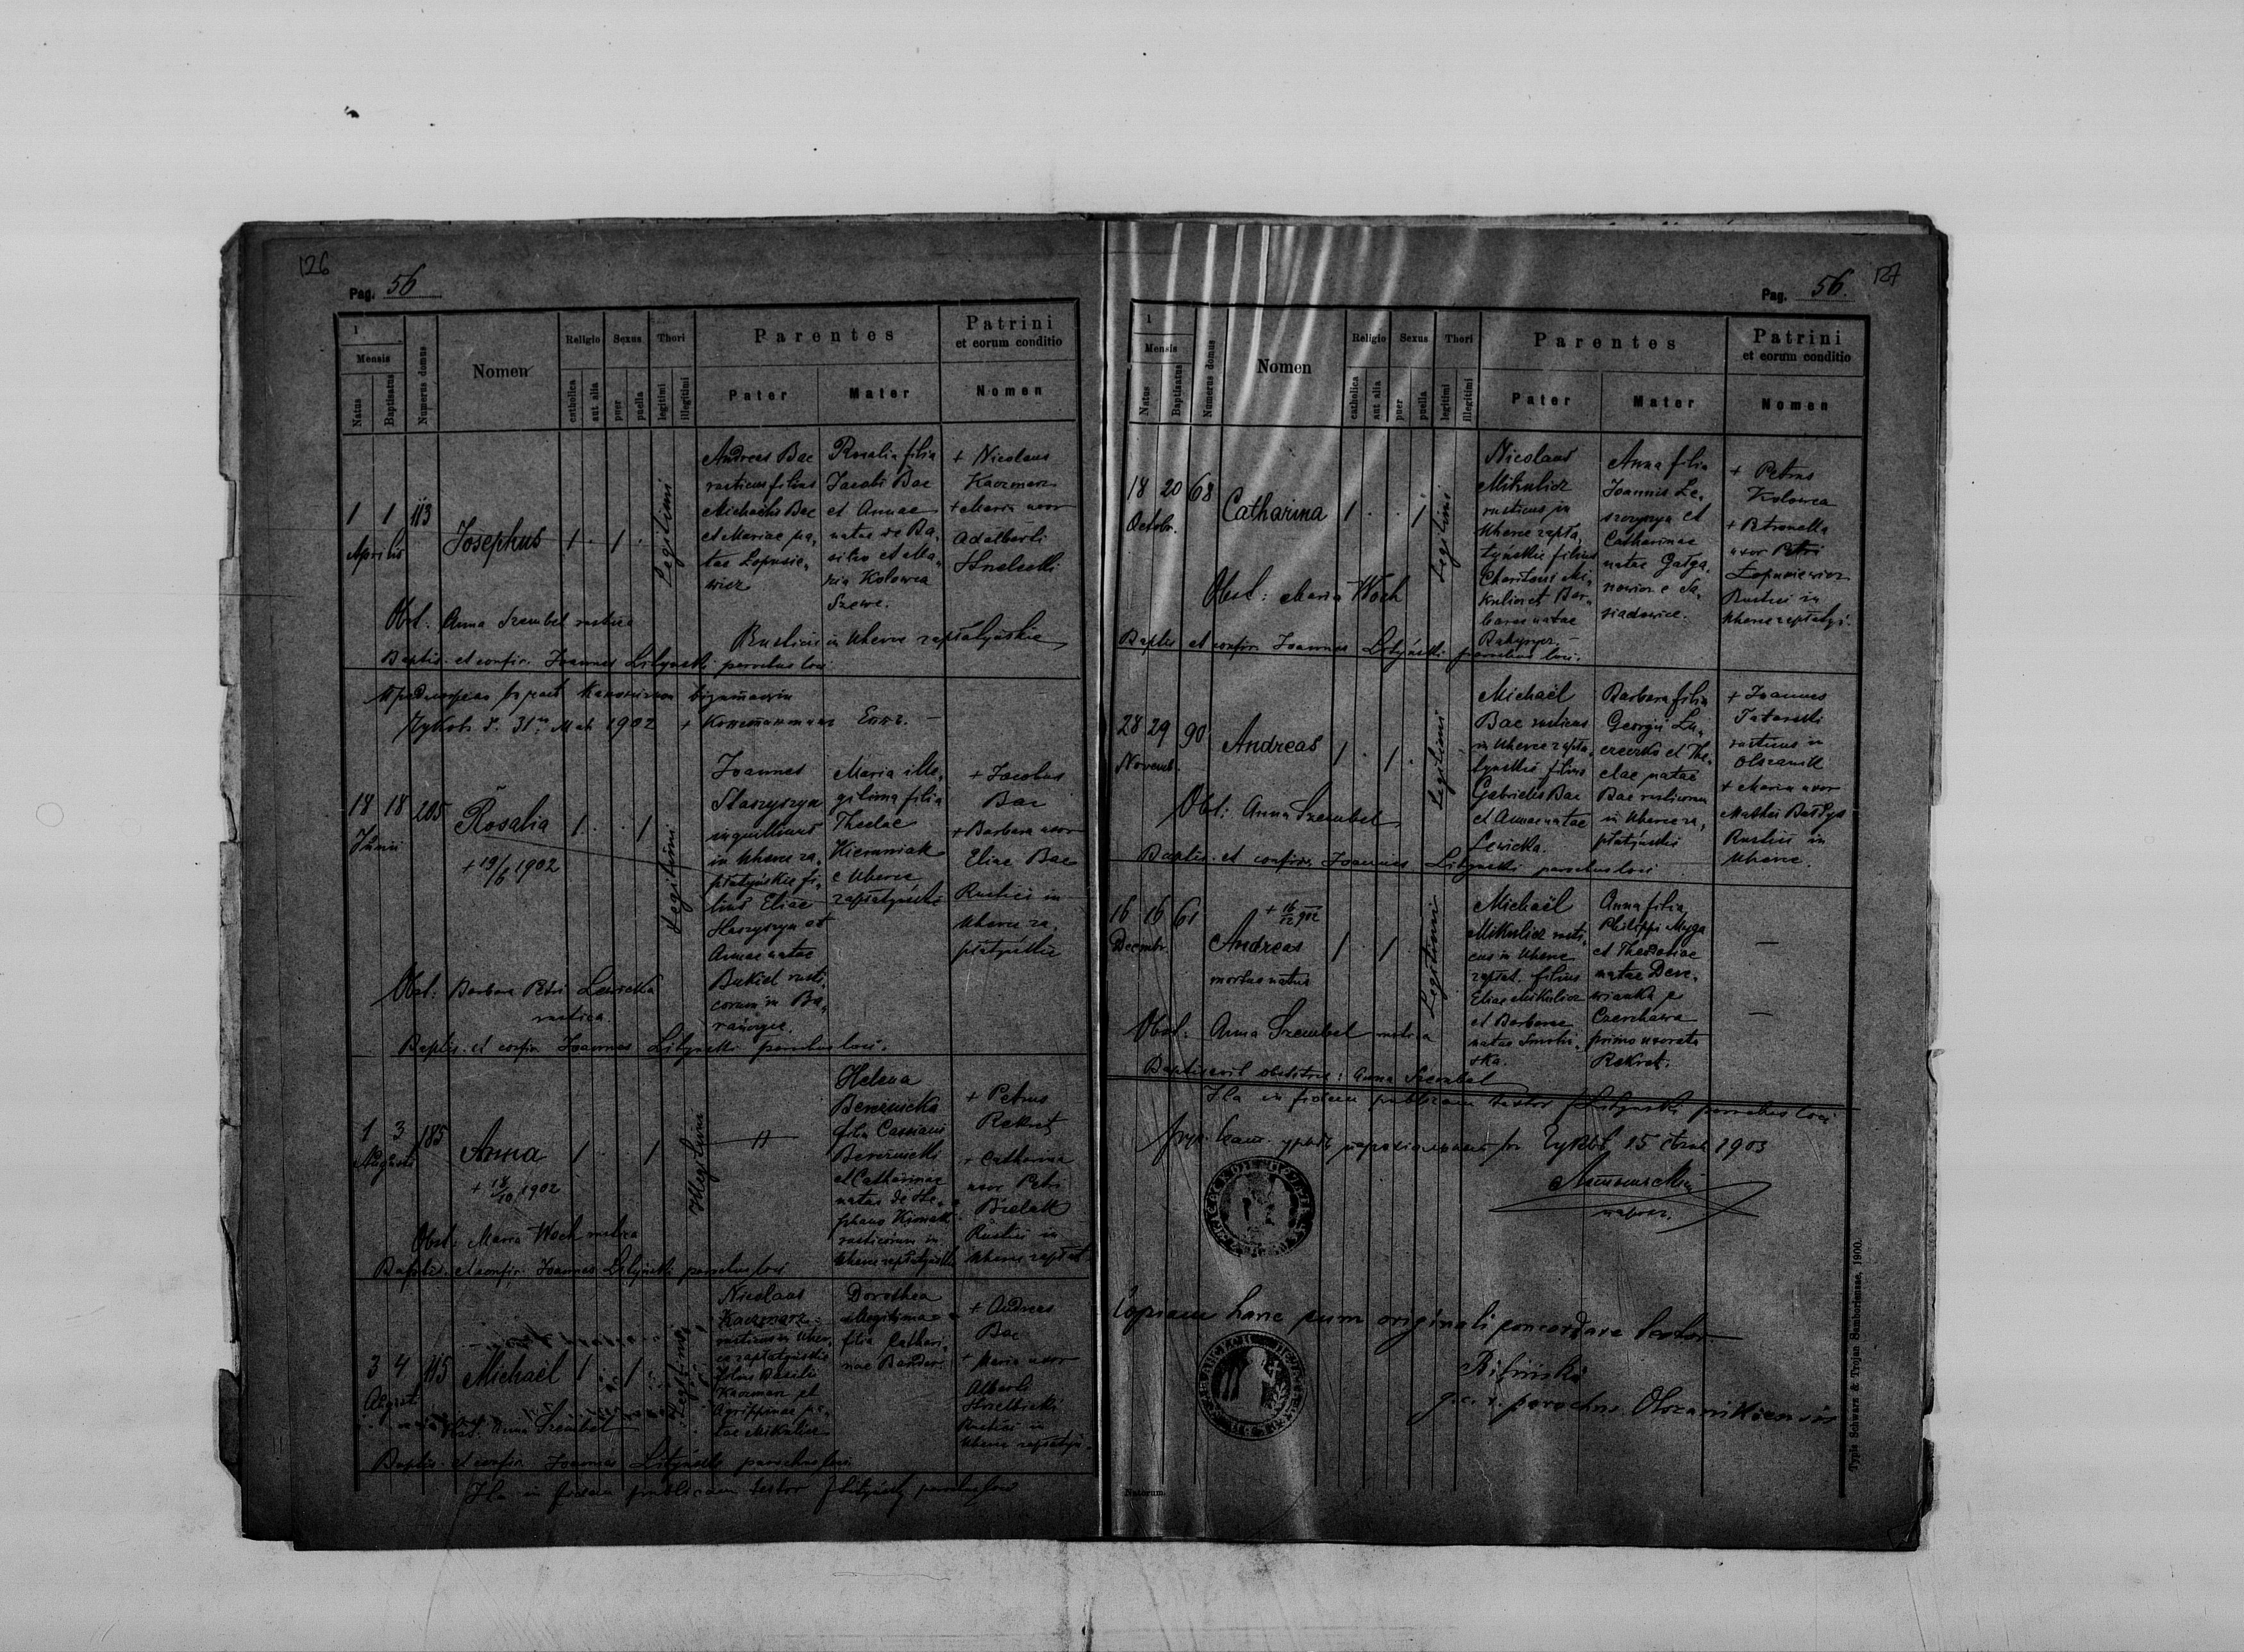 126
Pag. 56
1
Mensis
Natus
Baptisatus
Numerus domus
Nomen
Religio
catholica
aut alia
Sexus
puer
puella
Thori
legitimi
illegitimi
Parentes
Pater
Mater
Patrini
et eorum conditio
Nomen
1 1 113
Aprilis
Josephus
1 . 1 .
Legitimi
Andreas Bac
rusticus filius
Michaelis Bac
et Mariae na,
tae Łopusie,
wicz
Rosalia filia
Jacobi Bac
et Annae
natae de Ba,
silio et Ma,
ria Kolowca
Szewc.
+ Nicolaus
Kaczmarz
+ Maria uxor
Adalberti
Strzelecki
Obst. Anna Szembel rustica
Rustici in Uherce zapłatyńskie
Baptis. et confir. Joannes Lityński parochus loci
d. 31 Mai 1902 +
18 18 205
Junii
Rosalia
+ 19/6 1902
1 . . 1
Legitimi
Joannes
Staszyszyn
inquilinus
in Uherce za,
płatyńskie fi,
lius Eliae
Staszyszyn et
Annae natae
Bukiel rusti,
corum in Ba,
rańczyce.
Maria ille,
gitima filia
Theclae
Kierniak
e Uherce
zapłatyńskie
+ Jacobus
Bac
+ Barbara uxor
Eliae Bac
Rustici in
Uherce za,
płatyńskie
Obst: Barbara Petri Lewicka
rustica.
Baptis. et confir. Joannes Lityński parochus loci.
1 3 185
Augusti
Anna
+ 18/10 1902
1 . . 1
Illegitimi
Helena
Bereźnicka
filia Cassiani
Bereźnicki
et Catharinae
natae de Ste,
phano
rusticorum in
Uherce zapłatyńskie
+ Petrus
Rekret
+ Catharina
uxor Petri
Bielak
Rustici in
Uherce zapłat.
Obst: Maria Woch rustica
Baptis. et confir. Joannes Lityński parochus loci
3 4 115
August
Michaël
1 . 1 .
Legitimi
Nicolaus
Kaczmarz
rusticus in Uher,
ce zapłatyńskie
filius Basilii
Kaczmarz et
Agrippinae na,
tae Mikulicz
Dorothea
illegitima
filia Cathari,
nae Bandar.
+ Andreas
Bac
+ Maria uxor
Alberti
Strzelbicki
Rustici in
Uherce zapłatyń.
Obst. Anna Szembel
Baptis. et confir. Joannes Lityński parochus loci
Ita in fidem publicam testor J Lityński parochus loci
127
Pag. 56.
1
Mensis
Natus
Baptisatus
Numerus domus
Nomen
Religio
catholica
aut alia
Sexus
puer
puella
Thori
legitimi
illegitimi
Parentes
Pater
Mater
Patrini
et eorum conditio
Nomen
18 20 68
Octobr.
Catharina
1 . . 1
Legitimi
Nicolaus
Mikulicz
rusticus in
Uherce zapła,
tyńskie filius
Charitonis Mi,
kulicz et Bar,
barae natae
Anna filia
Joannis Le,
szczyszyn et
Catharinae
natae Gałga,
nowicz e Sa,
siadowice.
+ Petrus
Kolowca
+ Petronella
uxor Petri
Łopusiewicz
Rustici in
Uherce zapłatyń.
Obst: Maria Woch
Baptis et confir. Joannes Lityński parochus loci.
28 29 90
Novemb.
Andreas
1 . 1 .
Legitimi
Michaël
Bac rusticus
in Uherce zapła,
tyńskie filius
Gabrielis Bac
et Annae natae
Lewicka.
Barbara filia
Georgii Lu,
czeczko et The,
clae natae
Bac rusticorum
in Uherce za,
płatyńskie
+ Joannes
Tatarski
rusticus in
Olszanik
+ Maria uxor
Mathei Bałtys
Rustici in
Uherce.
Obst: Anna Szembel
Baptis. et confir. Joannes Lityński parochus loci
16 16 61
Decembr.
+ 16/12 902
Andreas
mortuo natus
1 . 1
Legitimi
Michaël
Mikulicz rusti,
cus in Uherce
zapłat. filius
Eliae Mikulicz
et Barbarae
natae
Anna filia
Philippi Myga
et Theodosiae
natae Dere,
wianka e
Czerchawa
primo uxorata
Rekret.
—
—
Obst: Anna Szembel rustica
Baptisavit obstetrix: Anna Szembel
Ita in fidem publicam testor J Lityński parochus loci
15 1903
Copiam hanc cum originali concordare testor
Biliński
g. c. r. parochus Olszanikiensis
Natorum.
Typis Schwarz & Trojan Samboriense, 1900.